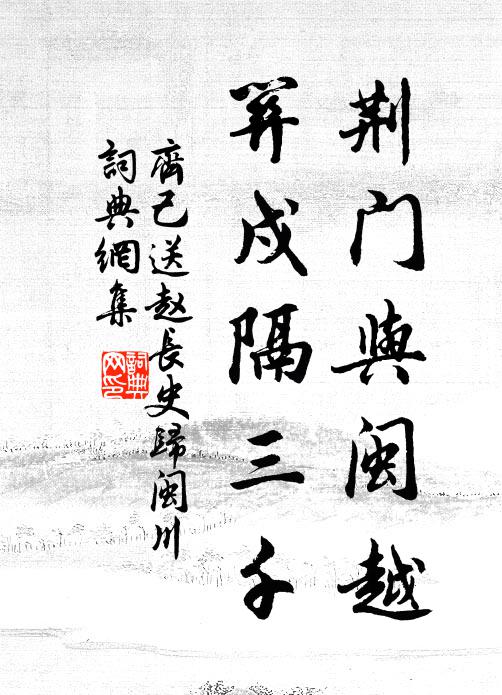 荆门與闽越
关戍隔三千
齊己送赵長史歸闽川
詞典網集
詞典网印